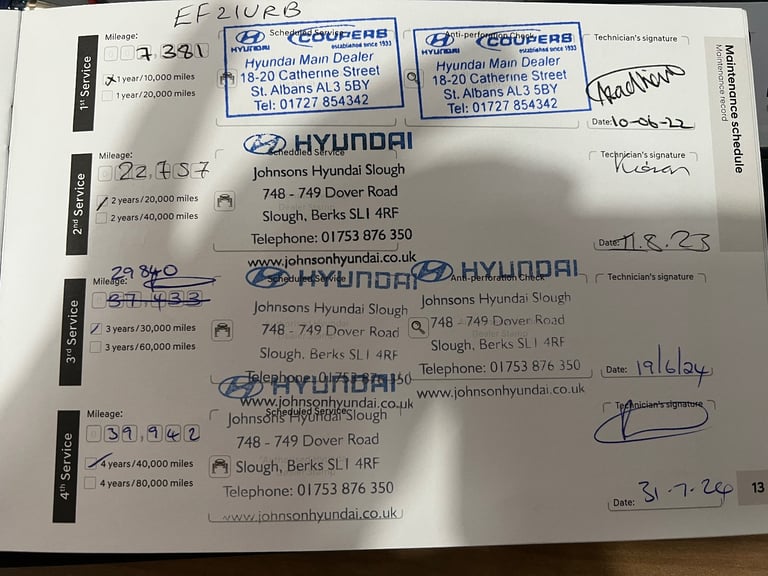 EF21URB
Maintenance schedule
Maintenance record
1st Service
Mileage:
07,381
1 year/10,000 miles
1 year/20,000 miles
Scheduled Service
HYUNDAI COUPERB
established since 1933
Hyundai Main Dealer
18-20 Catherine Street
St. Albans AL3 5BY
Tel: 01727 854342
Anti-perforation Check
HYUNDAI COUPERB
established since 1933
Hyundai Main Dealer
18-20 Catherine Street
St. Albans AL3 5BY
Tel: 01727 854342
Technician's signature
Date: 10-06-22
2nd Service
Mileage:
22,757
2 years/20,000 miles
2 years/40,000 miles
HYUNDAI
Scheduled Service
Johnsons Hyundai Slough
748 - 749 Dover Road
Slough, Berks SL1 4RF
Telephone: 01753 876 350
www.johnsonhyundai.co.uk
Technician's signature
Date: 11.8.23
3rd Service
29840
Mileage:
37,433
3 years/30,000 miles
3 years/60,000 miles
HYUNDAI
Scheduled Service
Johnsons Hyundai Slough
748 - 749 Dover Road
Slough, Berks SL1 4RF
Telephone: 01753 876 350
www.johnsonhyundai.co.uk
HYUNDAI
Anti-perforation Check
Johnsons Hyundai Slough
748 - 749 Dover Road
Dealer Stamp
Slough, Berks SL1 4RF
Telephone: 01753 876 350
www.johnsonhyundai.co.uk
Technician's signature
Date: 19/6/24
4th Service
Mileage:
39,942
4 years/40,000 miles
4 years/80,000 miles
HYUNDAI
Scheduled Service
Johnsons Hyundai Slough
748 - 749 Dover Road
Slough, Berks SL1 4RF
Telephone: 01753 876 350
www.johnsonhyundai.co.uk
Technician's signature
Date: 31-7-24
13